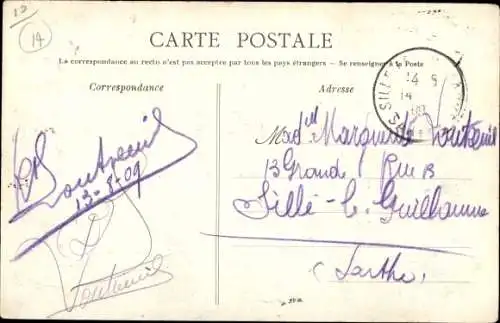 14
CARTE POSTALE
La correspondance au recto n'est pas acceptée par tous les pays étrangers — Se renseigner à la Poste
Correspondance
Adresse
SILLÉ
14
Montreuil
13-8-09
Montreuil
Mad^ell Marguerite Montreuil
13 Grande Rue 13
Sillé-le-Guillaume
(Sarthe)